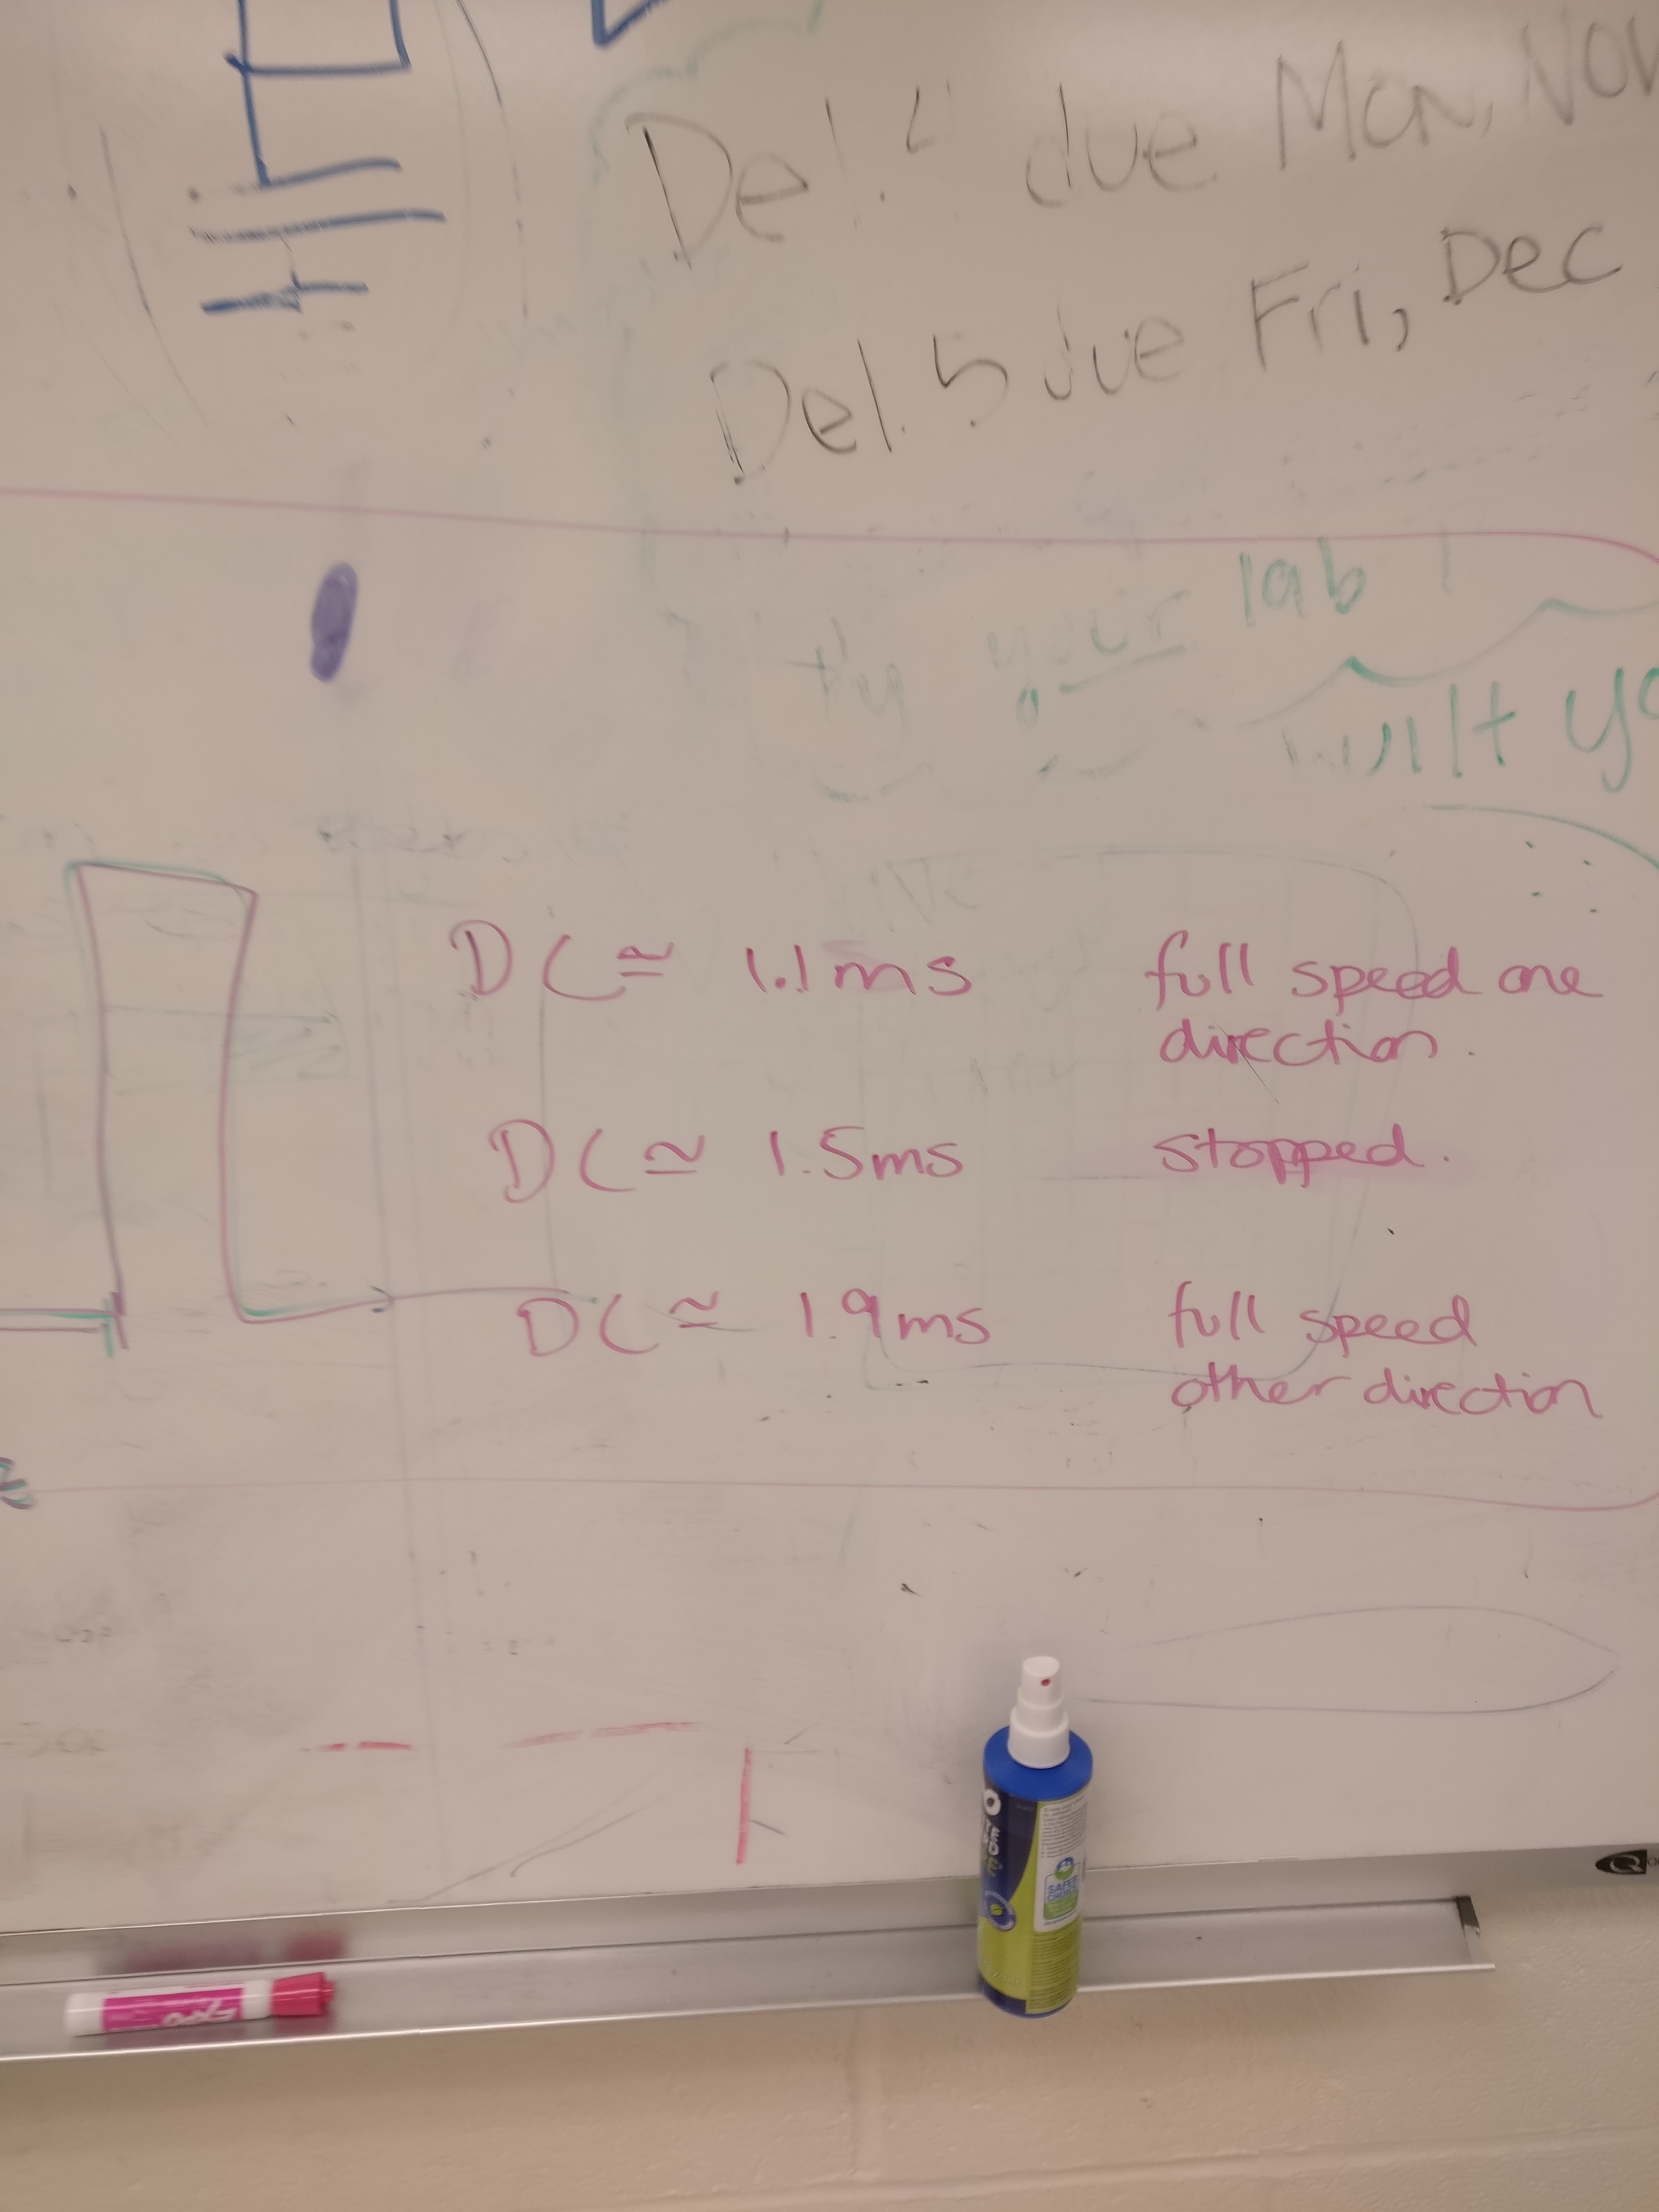 Del. 4 due Mon, Nov
Del. 5 due Fri, Dec
your lab !
DC ≃ 1.1ms full speed one
direction.
DC ≃ 1.5ms stopped.
DC ≃ 1.9ms full speed
other direction
EXPO
SAFER
CHOICE